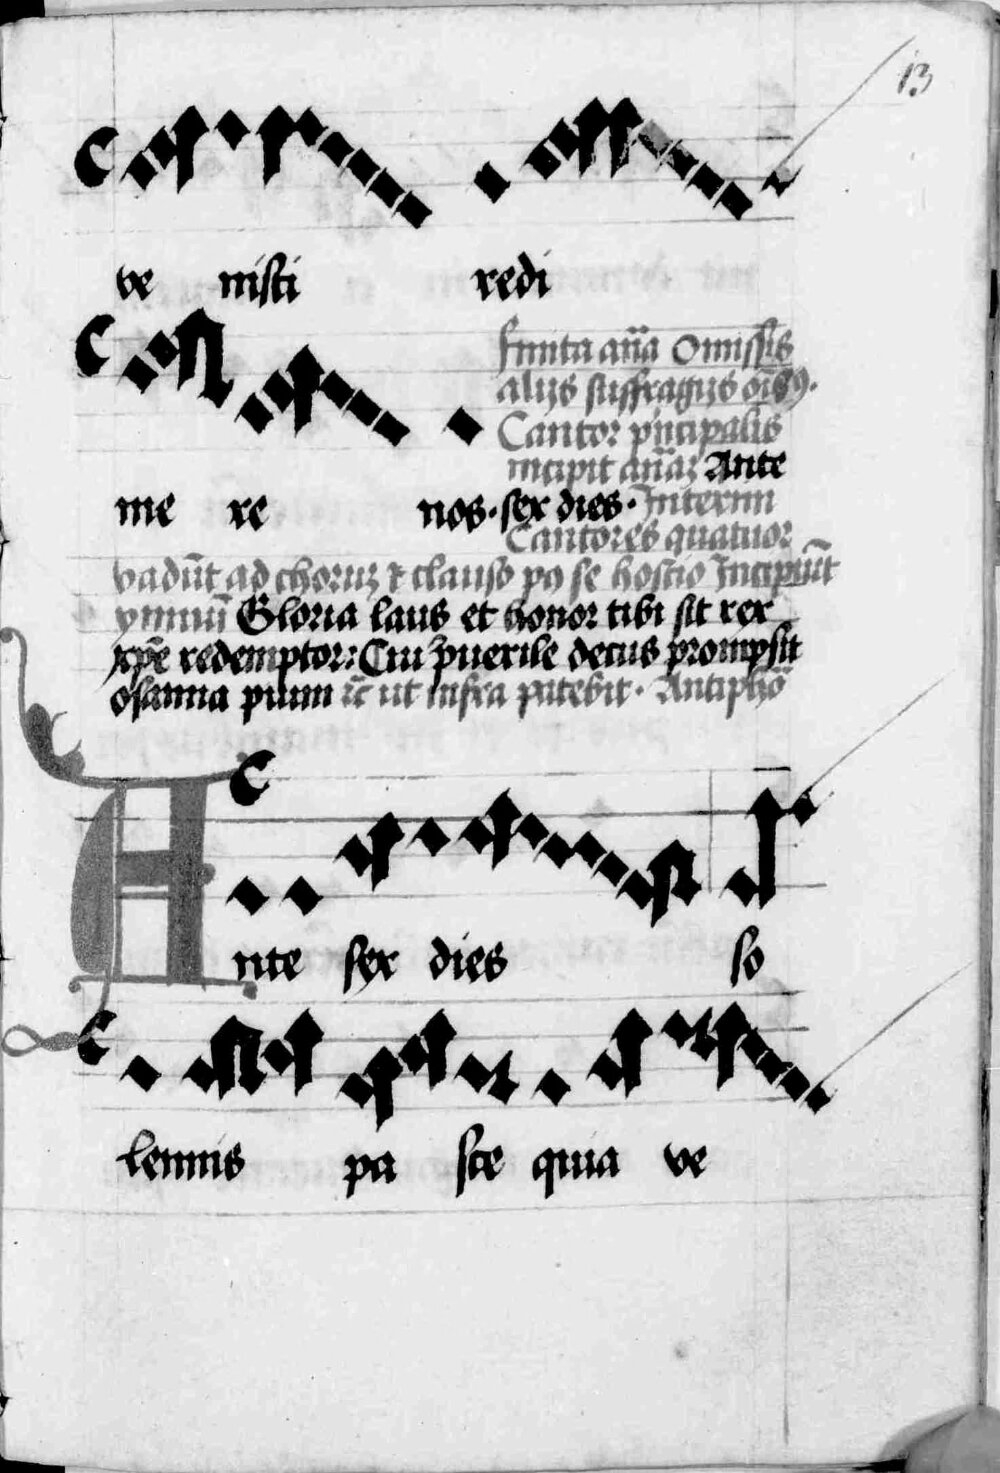 13
ve nisti redi
finita an̄a Omissis
alijs suffragijs oībꝰ.
Cantor p̄ncipalis
incipit an̄aꝫ Ante
me re nos. sex dies. Interim
Cantores quatuor
vadūt ad choruꝫ ⁊ clauso pꝰ se hostio Incipiūt
ymnū Gloria laus et honor tibi sit rex
xp̄e redemptor: Cui puerile decus prompsit
osanna pium ⁊c̄ ut infra patebit. Antiphō
Ante sex dies so
lennis pa sce quia ve